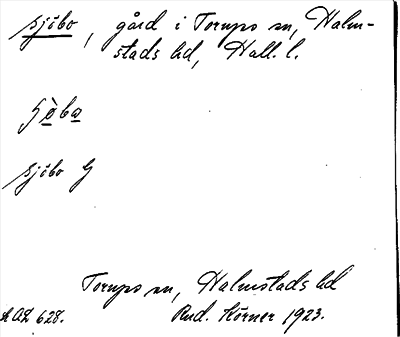 sjöbo, gård i Torups sn, Halm-
stads hd, Hall. l.
sjöbo G
Torups sn, Halmstads hd
AOL 628. Rud. Körner 1923.